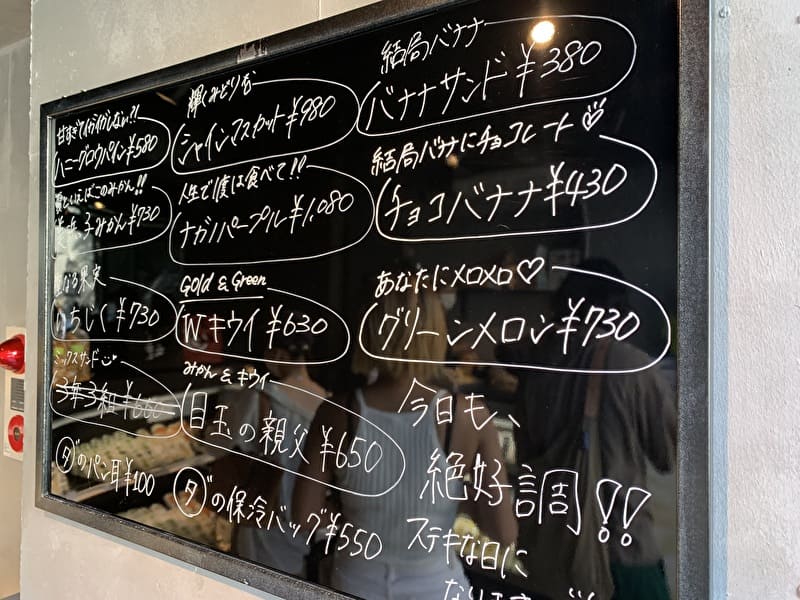 甘すぎてイガイガしない?!
ハニーグロウパイン¥580
といえばこのみかん!!
みかん¥730
なる果実
いちじく¥730
ミックスサンド
3年3組¥600
ダのパン耳¥100
輝くみどりむ
シャインマスカット¥980
人生で1度は食べて!!
ナガノパープル¥1,080
Gold & Green
Wキウイ¥630
みかん & キウイ
目玉の親父¥650
ダの保冷バッグ¥550
結局バナナ
バナナサンド¥380
結局バナにチョコレート
チョコバナナ¥430
あなたにメロメロ♡
グリーンメロン¥730
今日も、
絶好調!!
ステキな日に